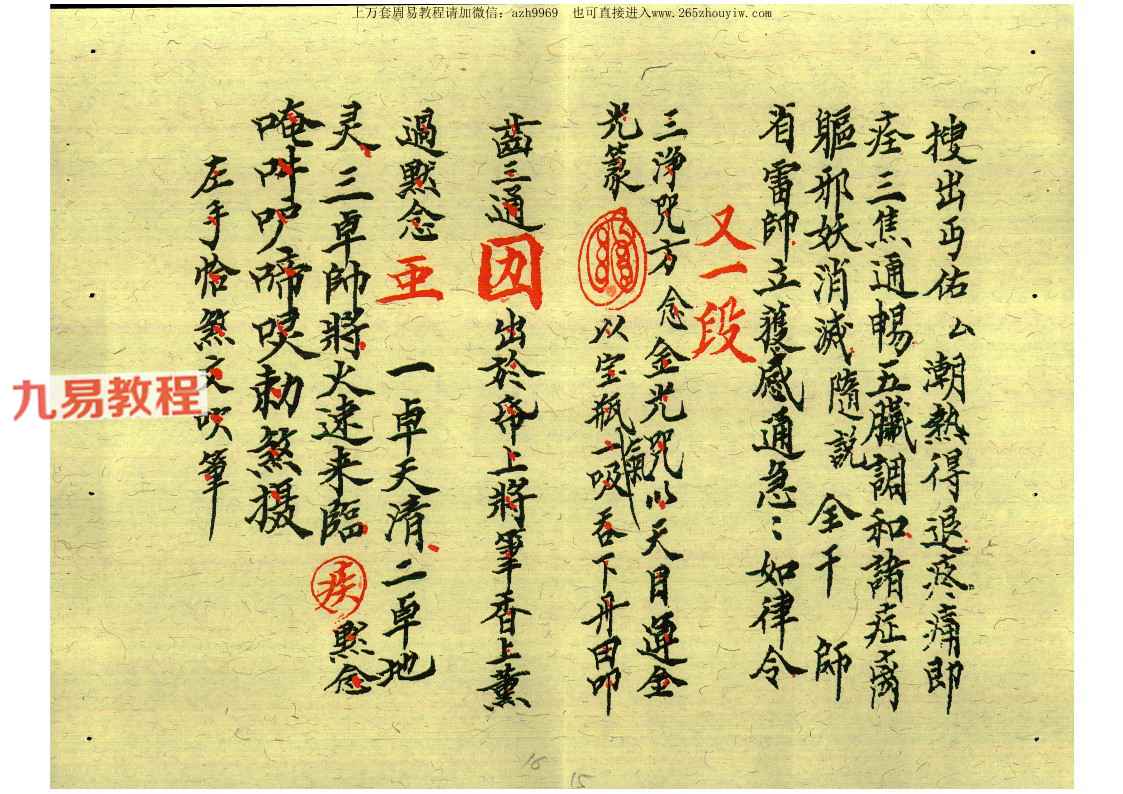 上万套周易教程请加微信：azh9969 也可直接进入www.265zhouyiw.com
搜出丐佑厶潮熱得退疼痛即
痊三焦通暢五臟調和諸症
軀邪妖消滅隨説 全干 師
省雷帥立獲感通急〻如律令
又一段
三净咒方念金光咒以天目運金
光篆 以宝瓶一吸氣吞下丹田叩
齒三通 囡 出於帋上將筆香上薰
過黙念 亜 一卓天清二卓地
灵三卓帥將火速来臨 疾 黙念
唵吽吖啼㕷勅煞摄
左手恰煞文吹筆
九易教程
16
15